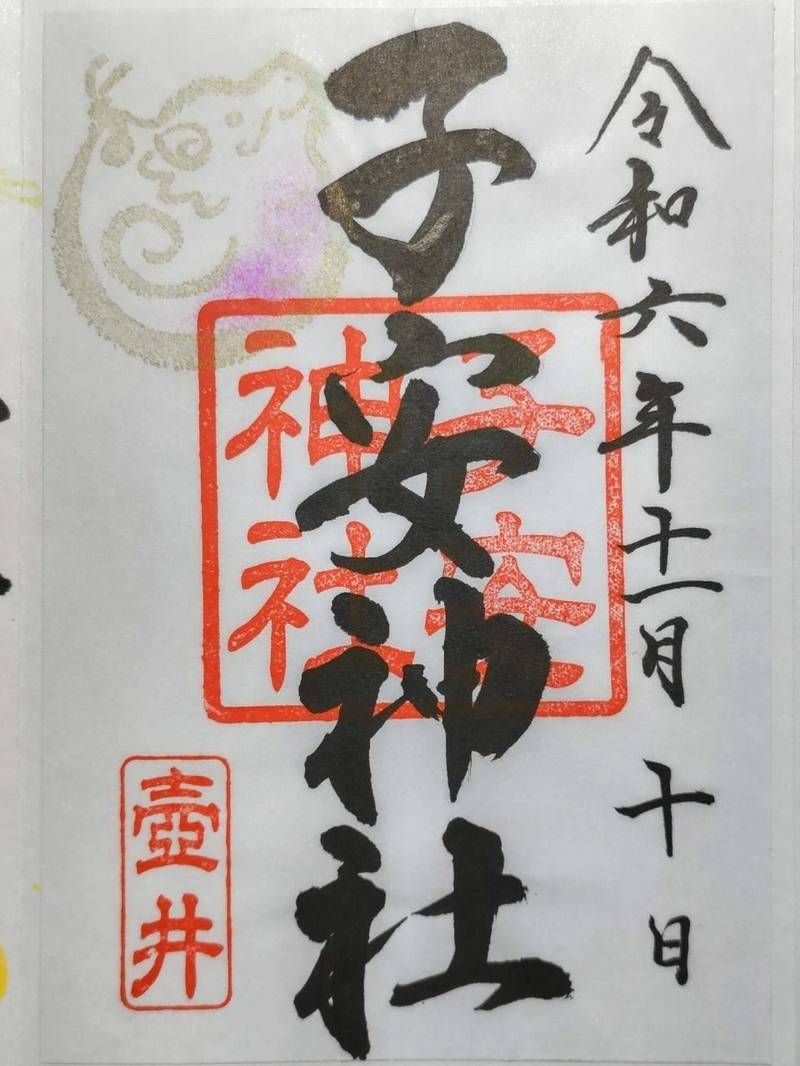 令和六年十一月十日
子安神社
子安
神社
壺井